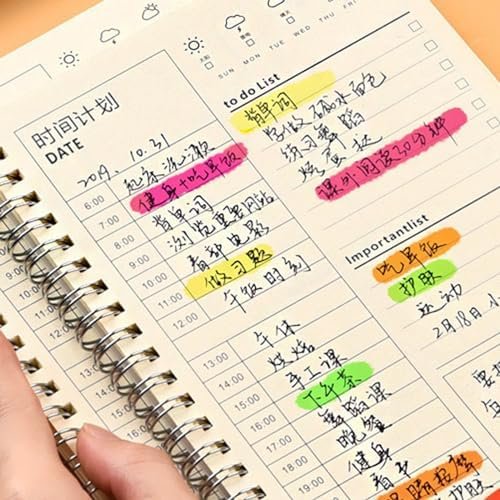 SUN MON TUE WED THU FRI SAT
时间计划
DATE
2019. 10.31
6:00 起床洗漱
7:00 健身+吃早饭
8:00 背单词
9:00 浏览重要网站
10:00 看部电影
11:00 做习题
12:00 午饭时刻
13:00 午休
14:00 烘焙
15:00 手工课
16:00 下午茶
17:00 舞蹈课
18:00 晚餐
19:00 健身
看书
to do List
背单词
学做碱水面包
练习舞蹈
烤蛋挞
课外阅读20分钟
Importantlist
吃早饭
护肤
运动
2月18日
9:00
10:00
11:00
12:00
13:00
14:00
15:00
16:00